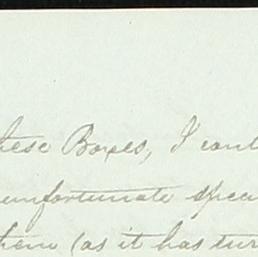 hese Boxes, I cont
unfortunate specu
them (as it has tur